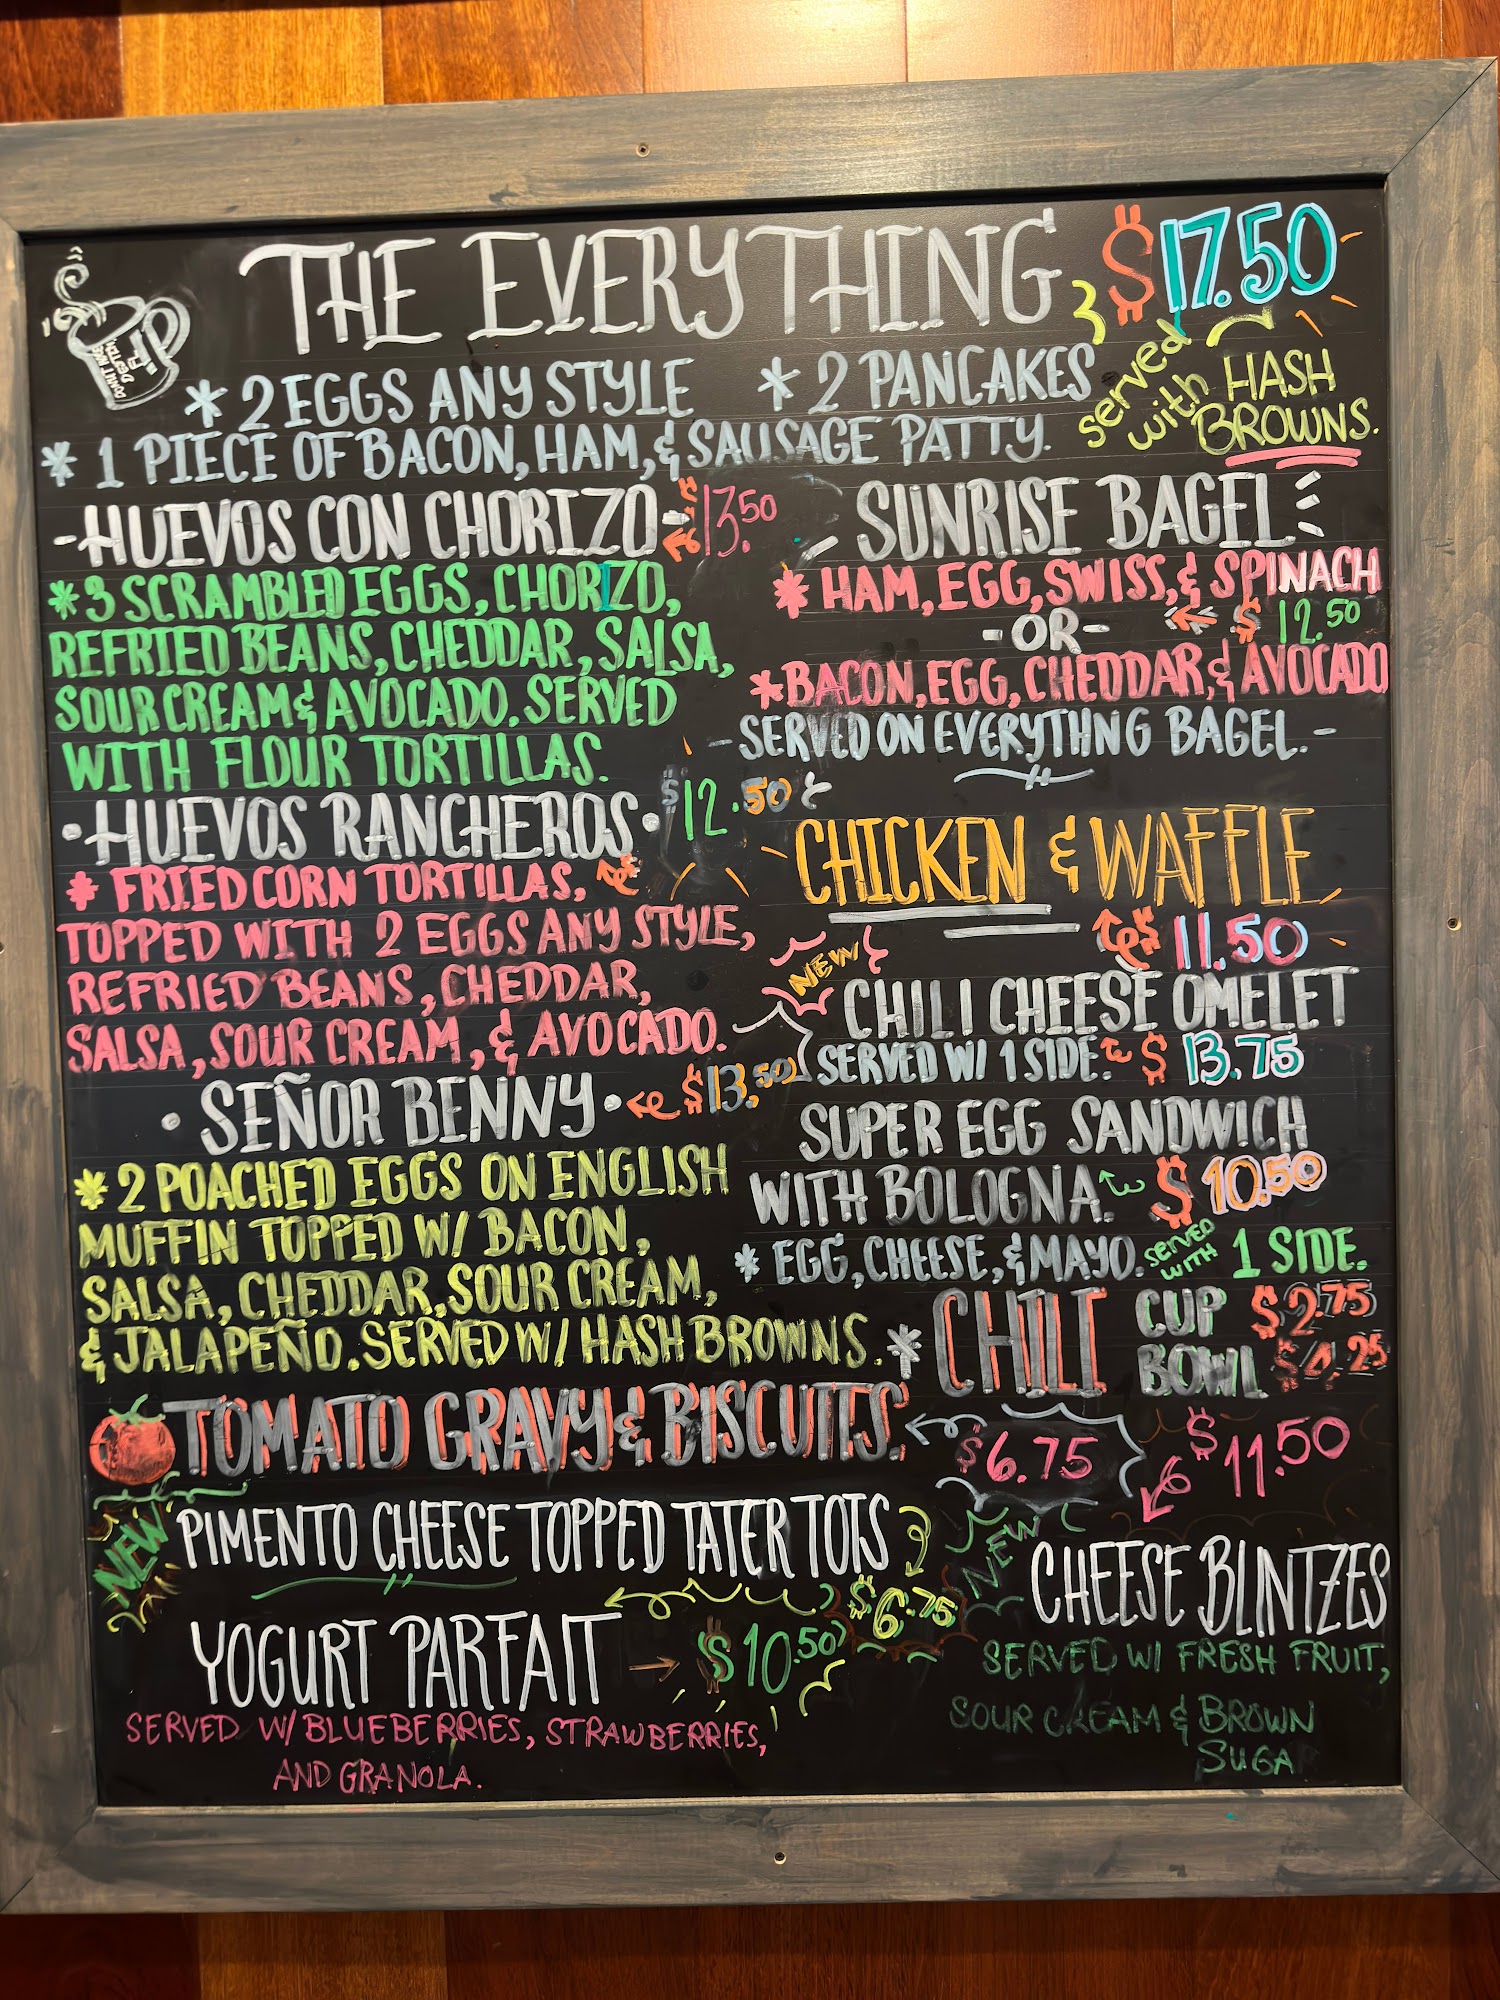 THE EVERYTHING $17.50
* 2 EGGS ANY STYLE * 2 PANCAKES
* 1 PIECE OF BACON, HAM, & SAUSAGE PATTY.
served with HASH
BROWNS.
-HUEVOS CON CHORIZO- $13.50
*3 SCRAMBLED EGGS, CHORIZO,
REFRIED BEANS, CHEDDAR, SALSA,
SOUR CREAM & AVOCADO. SERVED
WITH FLOUR TORTILLAS.
•HUEVOS RANCHEROS• $12.50
* FRIED CORN TORTILLAS,
TOPPED WITH 2 EGGS ANY STYLE,
REFRIED BEANS, CHEDDAR,
SALSA, SOUR CREAM, & AVOCADO.
• SEÑOR BENNY • $13.50
* 2 POACHED EGGS ON ENGLISH
MUFFIN TOPPED W/ BACON,
SALSA, CHEDDAR, SOUR CREAM,
& JALAPEÑO. SERVED W/ HASH BROWNS.
SUNRISE BAGEL
* HAM, EGG, SWISS, & SPINACH
-OR- $12.50
*BACON, EGG, CHEDDAR, & AVOCADO
-SERVED ON EVERYTHNG BAGEL.-
CHICKEN & WAFFLE
$11.50
NEW
CHILI CHEESE OMELET
SERVED W/ 1 SIDE. $13.75
SUPER EGG SANDWICH
WITH BOLOGNA. $10.50
* EGG, CHEESE, & MAYO. SERVED WITH 1 SIDE.
* CHILI CUP $2.75
BOWL $4.25
TOMATO GRAVY & BISCUITS. $6.75
NEW PIMENTO CHEESE TOPPED TATER TOTS
$6.75
YOGURT PARFAIT $10.50
SERVED W/ BLUEBERRIES, STRAWBERRIES,
AND GRANOLA.
$11.50
NEW
CHEESE BLINTZES
SERVED W/ FRESH FRUIT,
SOUR CREAM & BROWN
SUGA